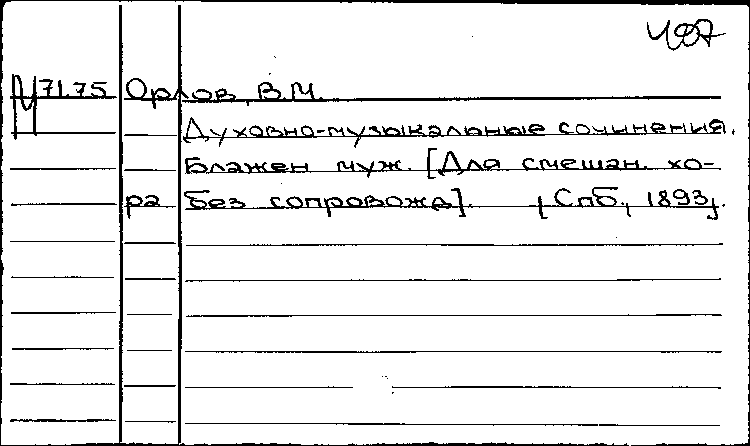 М 71.75 Орлов, В.М.
Духовно-музыкальные сочинения.
Блажен муж. [Для смешан. хо-
ра без сопровожд]. [Спб, 1893].